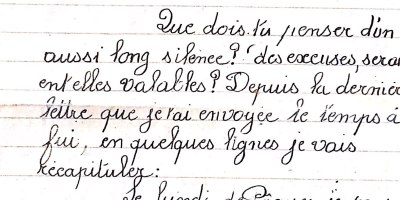 Que dois-tu penser d'un
aussi long silence? des excuses, sera
ent elles valables? Depuis la dernièr
lettre que je t'ai envoyée le temps à
fui, en quelques lignes je vais
récapituler:
le lundi de